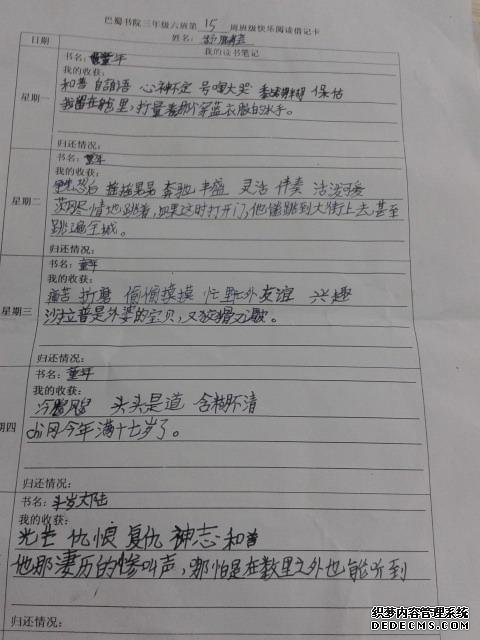 巴蜀书院三年级六班第 15 周班级快乐阅读借记卡
日期 姓名：
我的读书笔记
星期一
书名：童年
我的收获：
和善 自言自语 心神不定 号啕大哭 保佑
我留在舱里，打量着那个穿蓝衣服的水手。
归还情况：
星期二
书名：童年
我的收获：
摇摇晃晃 奔驰 丰盛 灵活 伴奏 活泼可爱
茨冈尽情地跳着，如果这时打开门，他能跳到大街上去，甚至
跳遍全城。
归还情况：
星期三
书名：童年
我的收获：
痛苦 折磨 偷偷摸摸 忙 野外 友谊 兴趣
沙拉普是外婆的宝贝，又狡猾又
归还情况：
期四
书名：童年
我的收获：
头头是道 含糊不清
chi冈今年满十七岁了。
归还情况：
书名：斗岁大陆
我的收获：
光芒 仇恨 复仇 神志 和首
他那凄历的惨叫声，哪怕是在数里之外也能听到
归还情况：
织梦内容管理系统
DESDEV.DEDECMS.COM